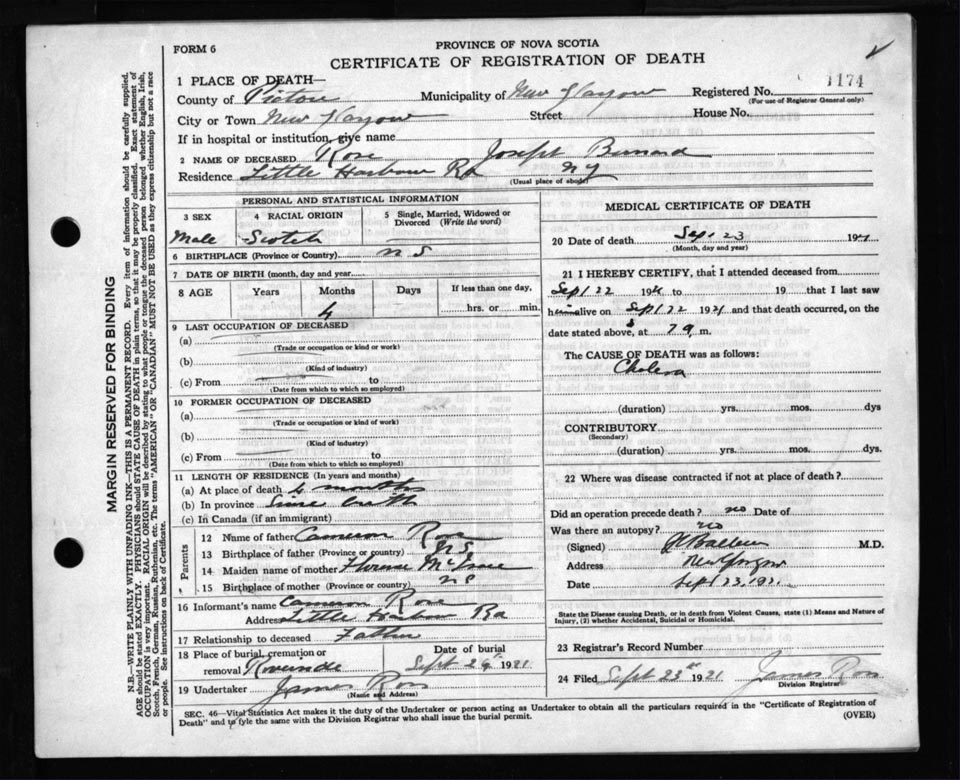 FORM 6
PROVINCE OF NOVA SCOTIA
CERTIFICATE OF REGISTRATION OF DEATH
1174
1 PLACE OF DEATH—
County of Pictou Municipality of New Glasgow Registered No.
(For use of Registrar General only)
City or Town New Glasgow Street House No.
If in hospital or institution, give name
2 NAME OF DECEASED Rose Joseph Bernard
Residence Little Harbour Rd NG
(Usual place of abode)
PERSONAL AND STATISTICAL INFORMATION
3 SEX
Male
4 RACIAL ORIGIN
Scotch
5 Single, Married, Widowed or Divorced (Write the word)
6 BIRTHPLACE (Province or Country) N S
7 DATE OF BIRTH (month, day and year)
8 AGE Years Months Days If less than one day,
4 hrs. or min.
9 LAST OCCUPATION OF DECEASED
(a)
(Trade or occupation or kind or work)
(b)
(Kind of industry)
(c) From to
(Date from which to which so employed)
10 FORMER OCCUPATION OF DECEASED
(a)
(Trade or occupation or kind of work)
(b)
(Kind of industry)
(c) From to
(Date from which to which so employed)
11 LENGTH OF RESIDENCE (In years and months)
(a) At place of death 4 months
(b) In province Since birth
(c) In Canada (if an immigrant)
Parents
12 Name of father Cameron Rose
13 Birthplace of father (Province or country) N.S.
14 Maiden name of mother Florence
15 Birthplace of mother (Province or country) N S
16 Informant's name Cameron Rose
Address Little Harbor Rd
17 Relationship to deceased Father
18 Place of burial, cremation or removal
Date of burial
Sept 24th 1921
19 Undertaker James Ross
(Name and Address)
MEDICAL CERTIFICATE OF DEATH
20 Date of death Sept 23 192
(Month, day and year)
21 I HEREBY CERTIFY, that I attended deceased from
Sept 22 192 to 19 that I last saw
h alive on Sept 22 1921 and that death occurred, on the
date stated above, at 7 a m.
The CAUSE OF DEATH was as follows:
Cholera
(duration) yrs. mos. dys
CONTRIBUTORY
(Secondary)
(duration) yrs. mos. dys
22 Where was disease contracted if not at place of death?
Did an operation precede death? no Date of
Was there an autopsy? no
(Signed) M.D.
Address New Glasgow
Date Sept 23, 1921.
State the Disease causing Death, or in death from Violent Causes, state (1) Means and Nature of
Injury, (2) whether Accidental, Suicidal or Homicidal.
23 Registrar's Record Number
24 Filed Sept 23rd 1921 James Ross
Division Registrar
SEC. 46—Vital Statistics Act makes it the duty of the Undertaker or person acting as Undertaker to obtain all the particulars required in the "Certificate of Registration of
Death" and to fyle the same with the Division Registrar who shall issue the burial permit.
(OVER)
MARGIN RESERVED FOR BINDING
N.B.—WRITE PLAINLY WITH UNFADING INK—THIS IS A PERMANENT RECORD. Every item of information should be carefully supplied.
AGE should be stated EXACTLY. PHYSICIANS should STATE CAUSE OF DEATH in plain terms, so that it may be properly classified. Exact statement of
OCCUPATION is very important. RACIAL ORIGIN will be described by stating to what people or tongue the deceased person belonged whether English, Irish,
Scotch, French, German, Russian, Ruthenian, etc. The terms "AMERICAN" OR "CANADIAN" MUST NOT BE USED as they express citizenship but not a race
or people. See instructions on back of Certificate.